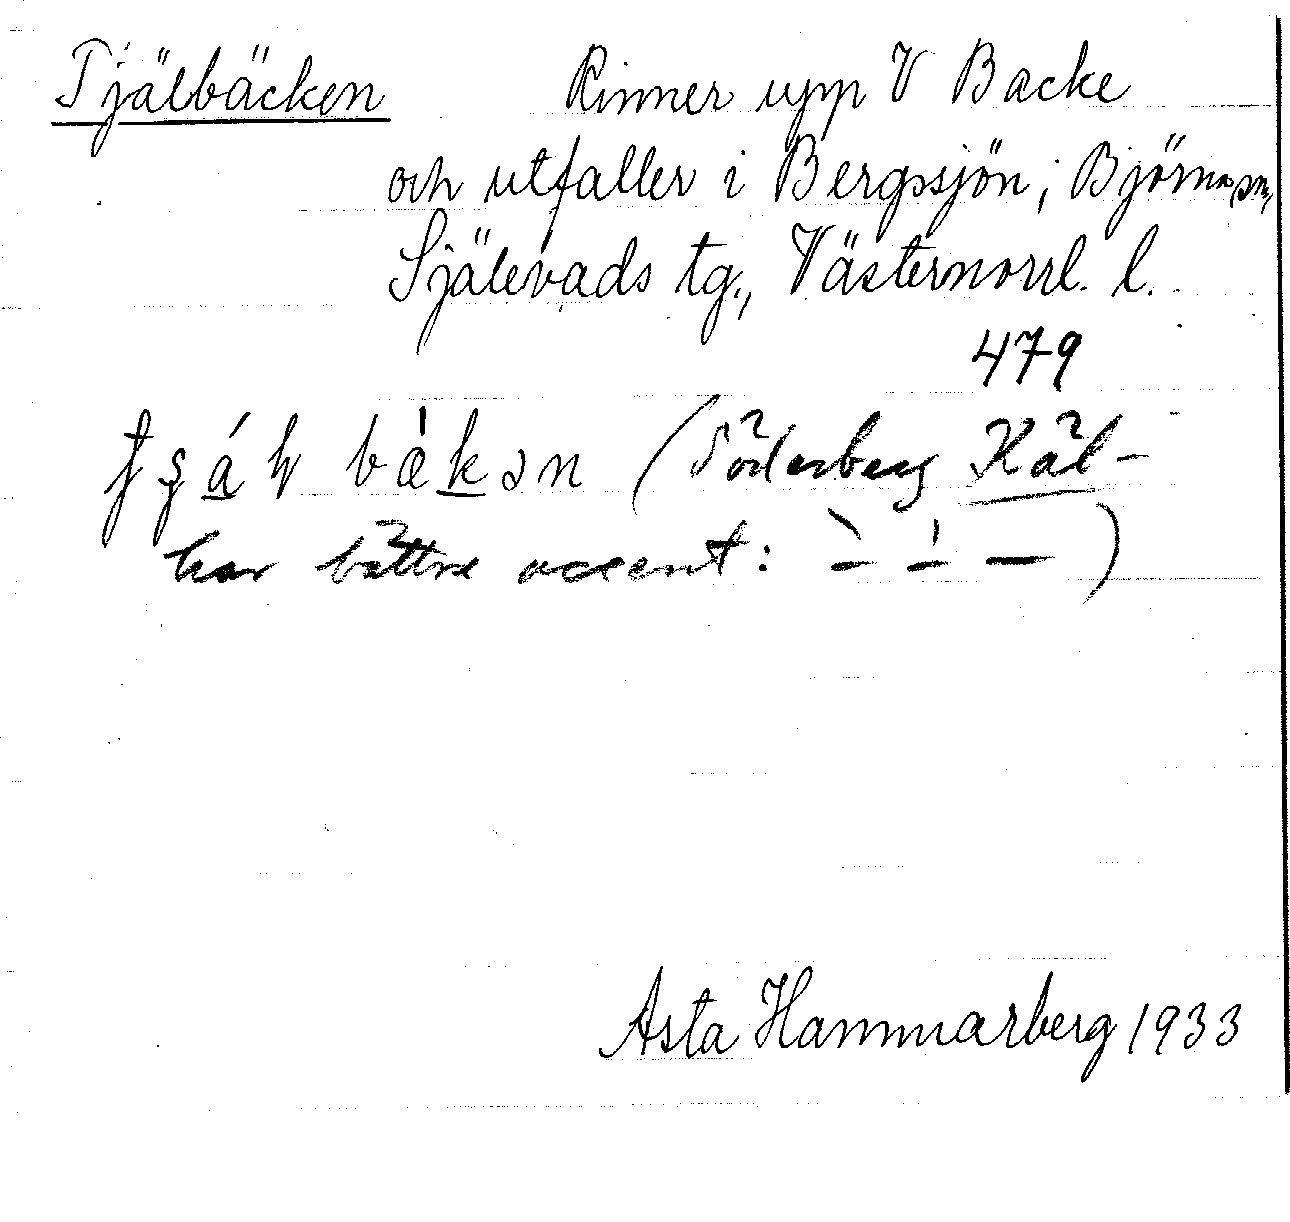 Tjälbäcken Rinner upp V Backe
och utfaller i Bergssjön, Björna sn,
Själevads tg., Västernorrl. l.
479
(Söderberg Käl-
har bättre accent: ̀– ́– –)
Asta Hammarberg 1933